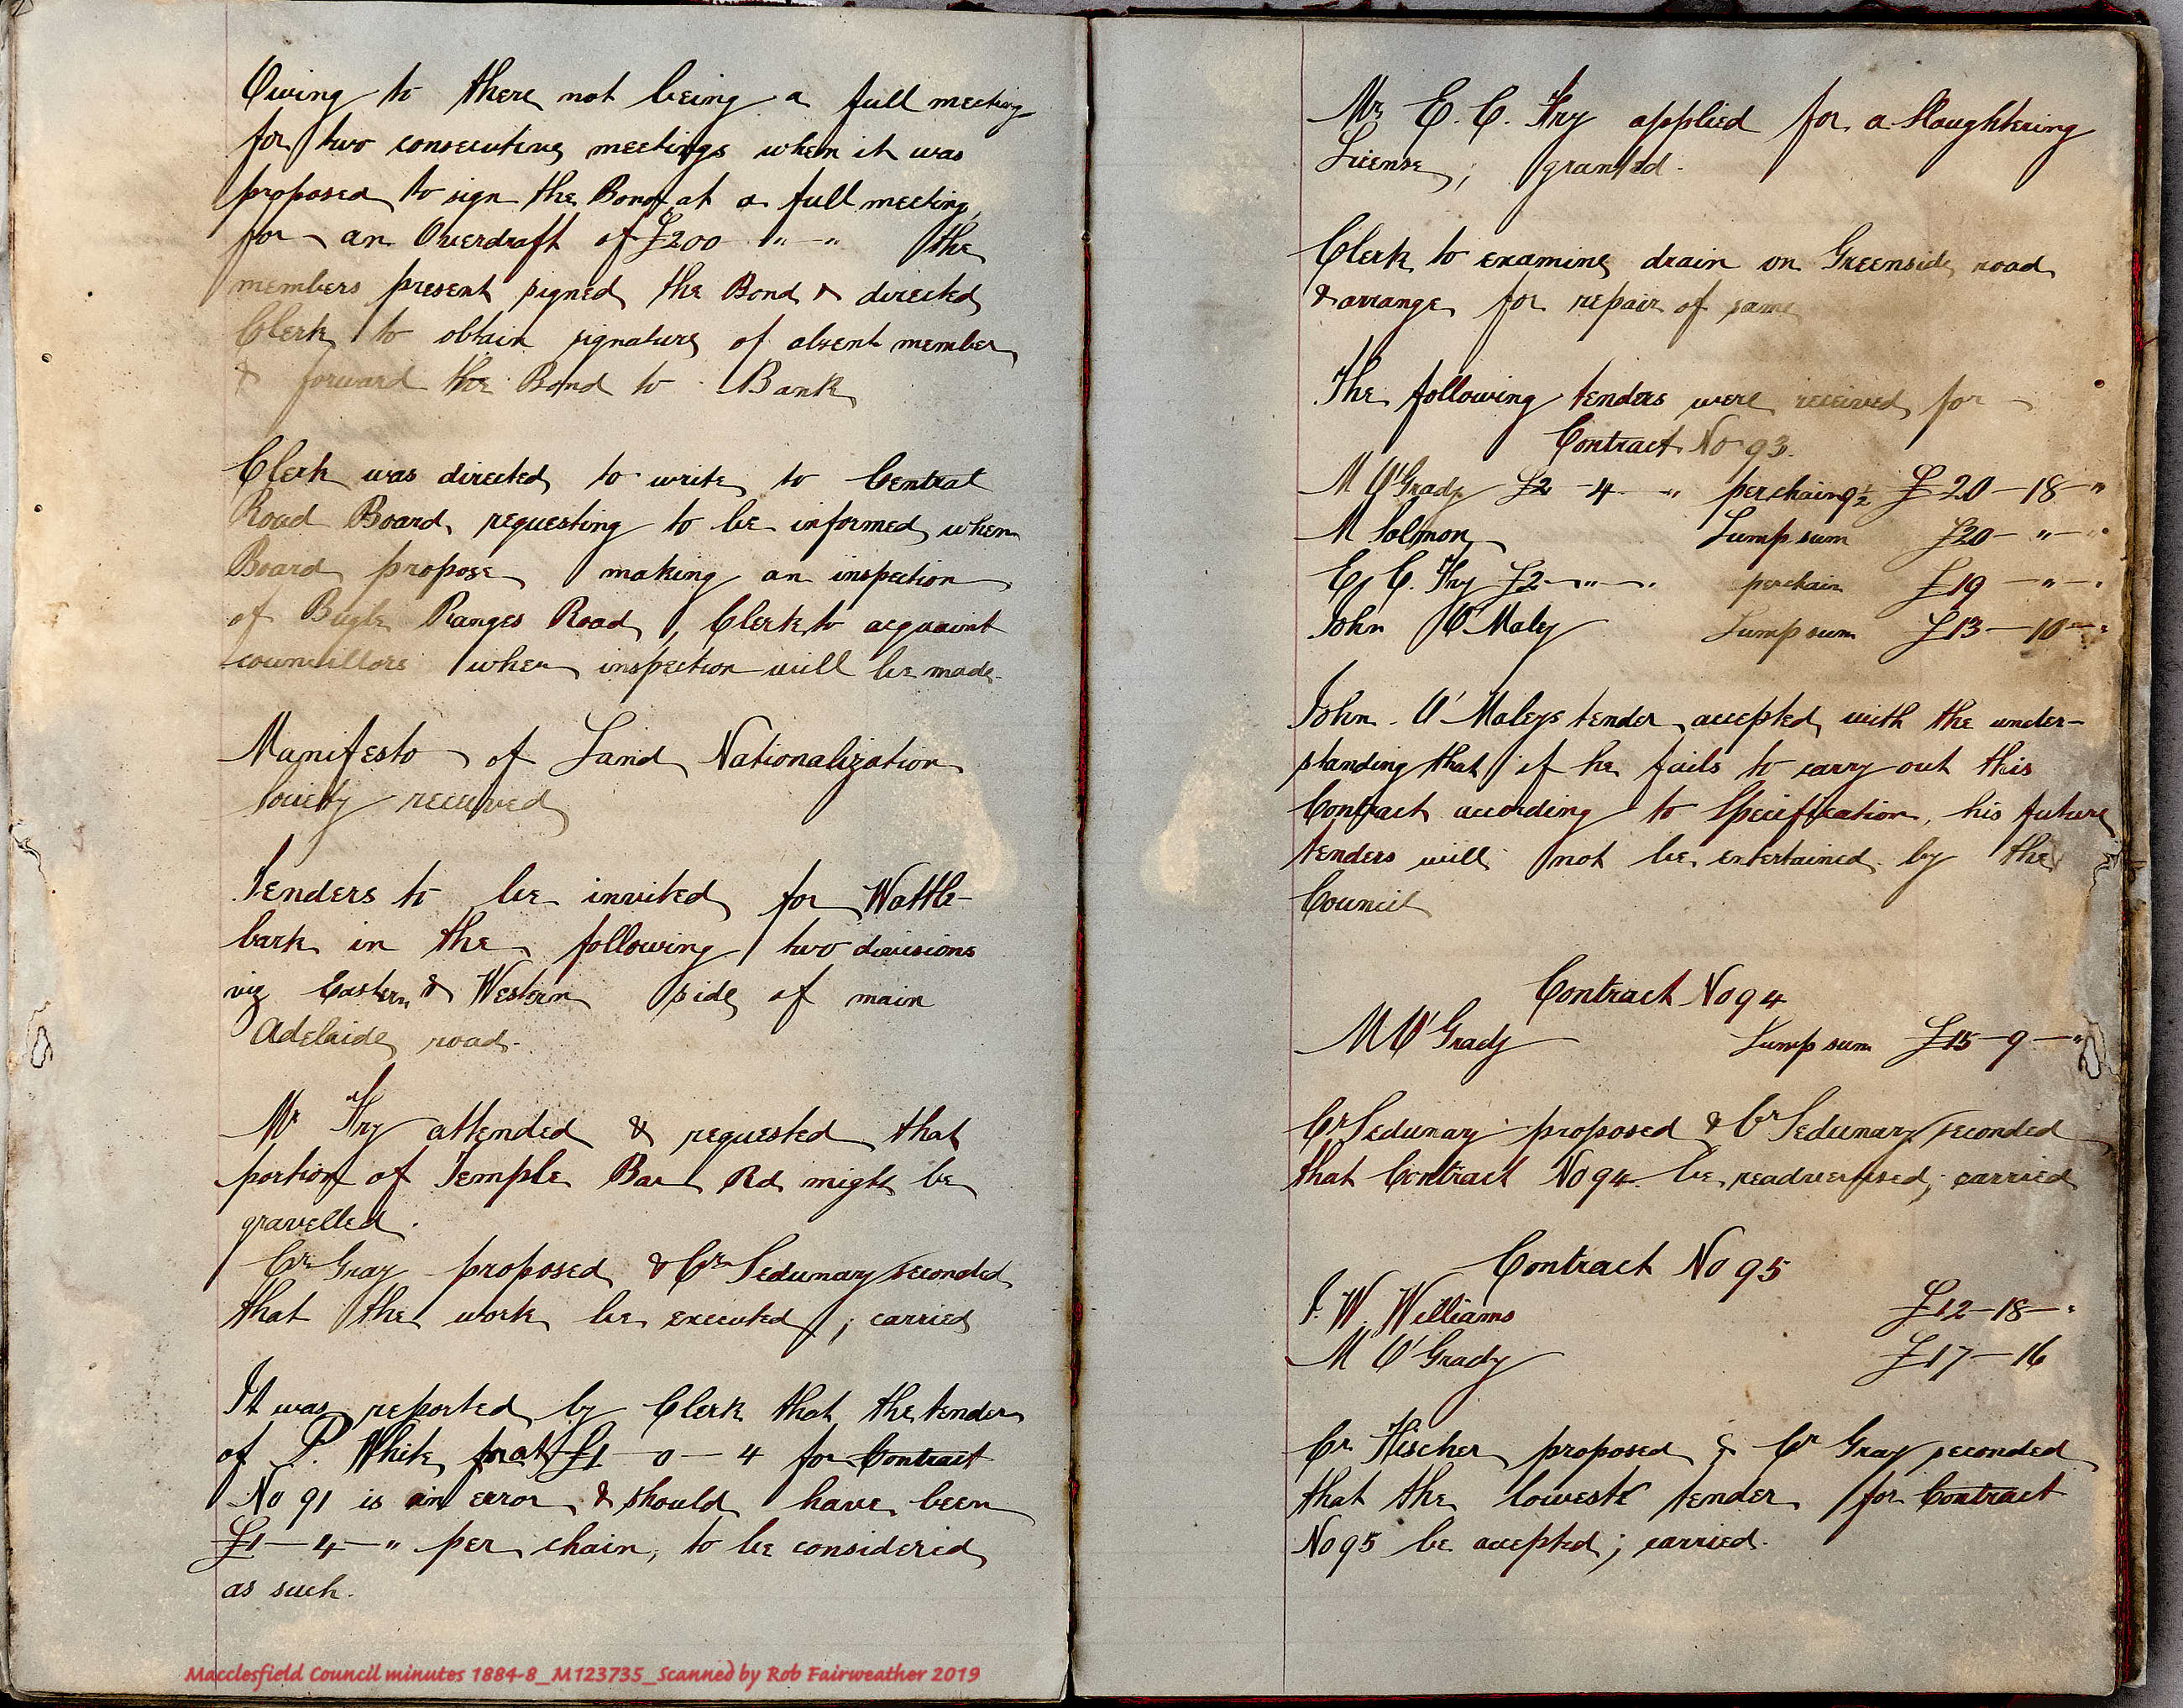 Owing to there not being a full meeting
for two consecutive meetings when it was
proposed to sign the Bond at a full meeting,
for an Overdraft of £200 " - " the
members present signed the Bond & directed
Clerk to obtain signature of absent member
& forward the Bond to Bank
Clerk was directed to write to Central
Road Board, requesting to be informed when
Board propose making an inspection
of Bugle Ranges Road, Clerk to acquaint
councillors when inspection will be made.
Manifesto of Land Nationalization
Society received
Tenders to be invited for Wattle-
bark in the following two divisions
viz Eastern & Western side of main
Adelaide road.
Mr Fry attended & requested that
portion of Temple Bar Rd might be
gravelled.
Cr Gray proposed & Cr Sedunary seconded
that the work be executed; carried
It was reported by Clerk that the tender
of P. White for at £1 - 0 - 4 for Contract
No 91 is an error & should have been
£1 - 4 - " per chain, to be considered
as such.
Mr E. C. Fry applied for a Slaughtering
License; granted.
Clerk to examine drain on Greenside road
& arrange for repair of same
The following tenders were received for
Contract No 93.
M O'Grady £2 - 4 - " per chain 9½ £20 - 18 - "
M Solmon Lump sum £20 - " - "
E. C. Fry £2 - " - " per chain £19 - " - "
John O'Maley Lump sum £13 - 10 - "
John O'Maleys tender accepted with the under-
standing that if he fails to carry out this
Contract according to Specification, his future
tenders will not be entertained by the
Council
Contract No 94
M O'Grady Lump sum £15 - 9 - "
Cr Sedunary proposed & Cr Sedunary seconded
that Contract No 94 be readvertised; carried
Contract No 95
J. W. Williams £12 - 18 - "
M O'Grady £17 - 16
Cr Fischer proposed & Cr Gray seconded
that the lowest tender for Contract
No 95 be accepted; carried.
Macclesfield Council minutes 1884-8_M123735_Scanned by Rob Fairweather 2019